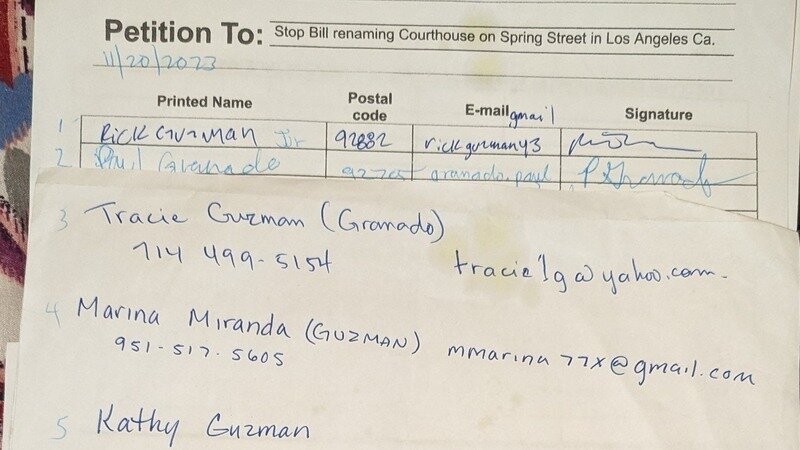 Petition To: Stop Bill renaming Courthouse on Spring Street in Los Angeles Ca.
11/20/2023
Printed Name Postal code E-mail gmail Signature
1 Rick Guzman Jir 92882 rickguzman43
2 Granado granado.paul
3 Tracie Guzman (Granado)
714 499-5154 tracie1g@yahoo.com
4 Marina Miranda (GUZMAN)
951-517-5605 mmarina77x@gmail.com
5 Kathy Guzman